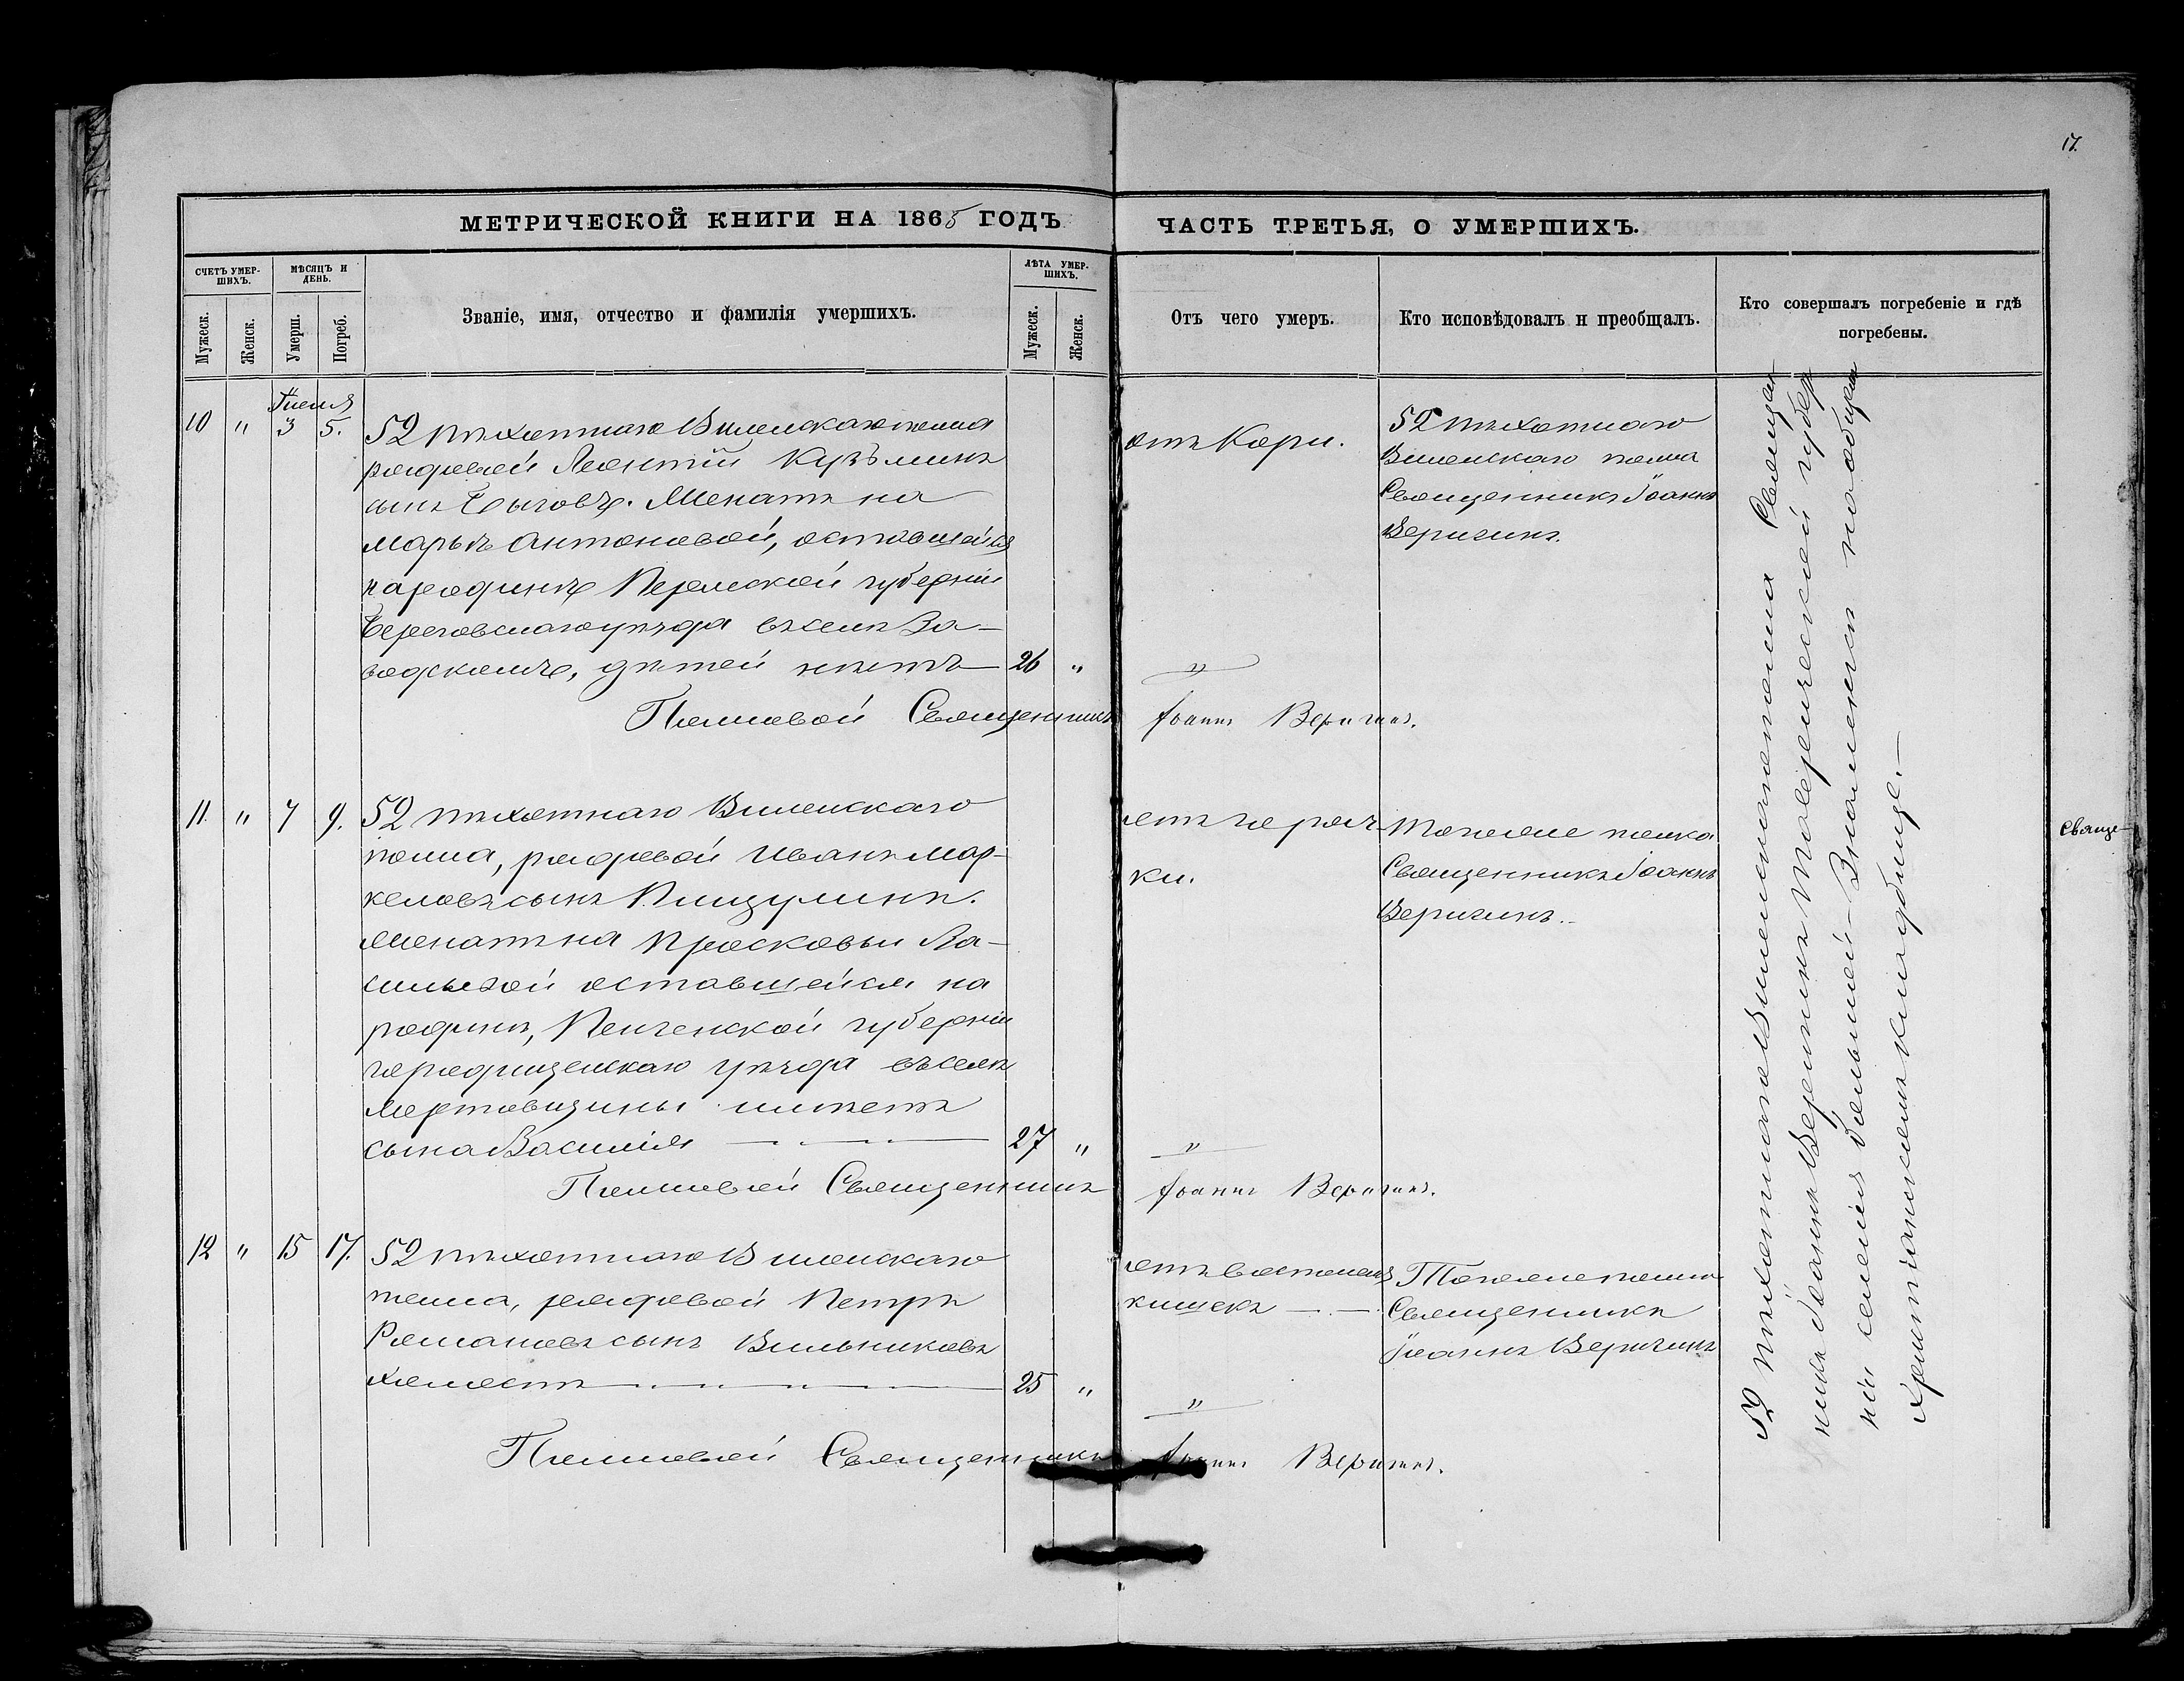 17.
МЕТРИЧЕСКОЙ КНИГИ НА 1865 ГОДЪ
ЧАСТЬ ТРЕТЬЯ, О УМЕРШИХЪ.
СЧЕТЪ УМЕР-
ШИХЪ.
МѢСЯЦЪ И
ДЕНЬ.
Званіе, имя, отчество и фамилія умершихъ.
ЛѢТА УМЕР-
ШИХЪ.
Мужеск.
Женск.
Умерш.
Погреб.
Мужеск.
Женск.
Отъ чего умеръ.
Кто исповѣдовалъ и преобщалъ.
Кто совершалъ погребеніе и гдѣ
погребены.
10 " 3 5.
52 пѣхотнаго Виленскаго полка
рядовой Леонтій Кузьминъ
сынъ . Женатъ на
Марьѣ Антоновой, оставшейся
на родинѣ Пермской губерніи
уѣзда въ селѣ За-
водскомъ, дѣтей нѣтъ 26 "
отъ Кори.
52 пѣхотнаго
Виленскаго полка
Священникъ Іоаннъ
Веригинъ.
"
Полковой Священникъ Іоаннъ Веригинъ.
11. " 7 9.
52 пѣхотнаго Виленскаго
полка, рядовой Иванъ Мар-
келовъ сынъ Пищулинъ.
Женатъ на Просковьи Ва-
сильевой оставшейся на
родинѣ, Пензенской губерніи
городищенскаго уѣзда въ селѣ
имѣетъ
сына Василія 27 "
отъ горяч-
ки.
Тогоже полка
Священникъ Іоаннъ
Веригинъ.
"
Полковой Священникъ Іоаннъ Веригинъ.
12 " 15 17.
52 пѣхотнаго Виленскаго
полка, рядовой Петръ
Романовъ сынъ Вильниковъ
холостъ 25 "
отъ воспален.
кишекъ
Тогоже полка
Священникъ
Іоаннъ Веригинъ
"
Полковой Священникъ Іоаннъ Веригинъ.
52 пѣхотнаго Виленскаго полка Священ-
никъ Іоаннъ Веригинъ губер-
ніи селенія на общем
Христіанскомъ кладбище.
Свяще-